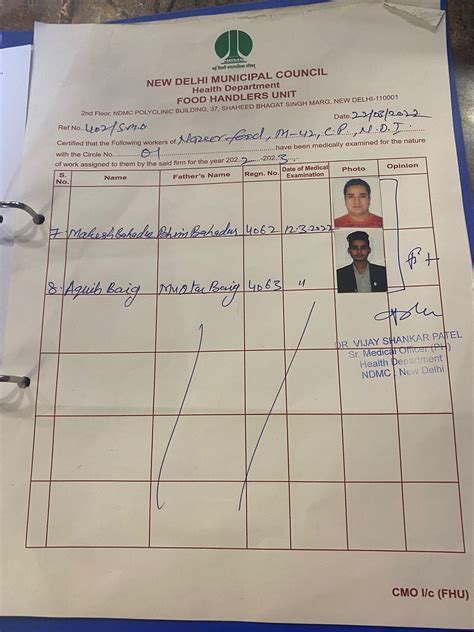 NEW DELHI MUNICIPAL COUNCIL
Health Department
FOOD HANDLERS UNIT
2nd Floor, NDMC POLYCLINIC BUILDING, 37, SHAHEED BHAGAT SINGH MARG, NEW DELHI-110001
Ref No. 402/S.M.O Date 22/03/2022
Certified that the Following workers of Nazeer food, M-42, C.P., N.D.1
with the Circle No. 01 have been medically examined for the nature
of work assigned to them by the said firm for the year 2022-2023.
S. No. Name Father's Name Regn. No. Date of Medical Examination Photo Opinion
7. Mahesh Bahadur Bahadur 4062 12.3.2022
8. Aquib Baig Mustak Baig 4063 "
Fit
DR. VIJAY SHANKAR PATEL
Sr. Medical Officer (PH)
Health Department
NDMC : New Delhi
CMO I/c (FHU)